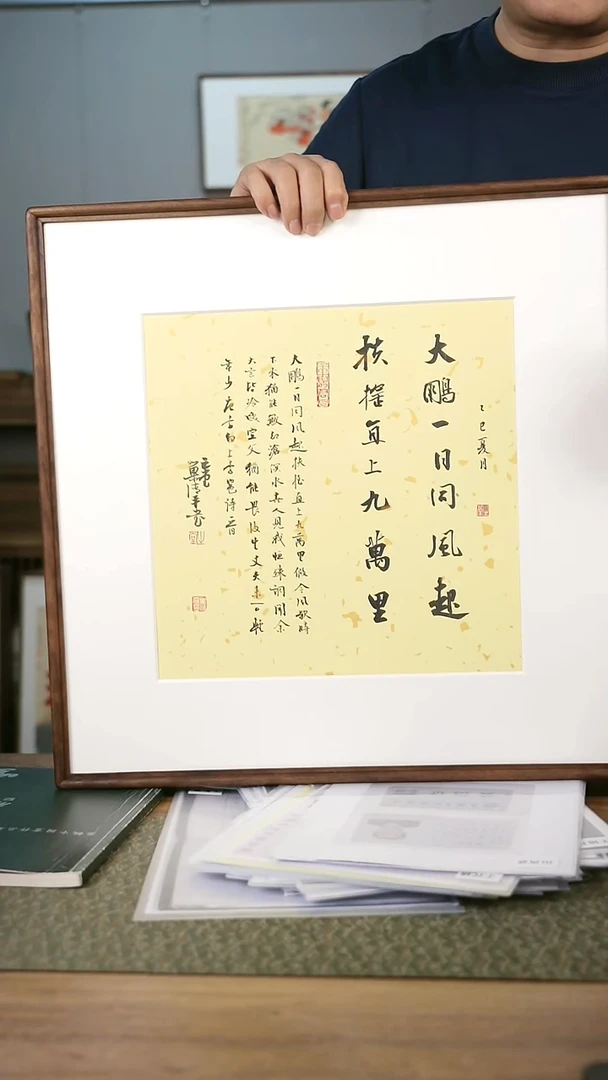 乙巳夏月
大鹏一日同风起
扶摇直上九萬里
大鹏一日同风起扶摇直上九萬里假令风歇时
下来猶能簸却滄溟水世人見我恒殊調聞余
大言皆冷笑宣父猶能畏後生丈夫未可輕
年少唐李白上李邕詩一首